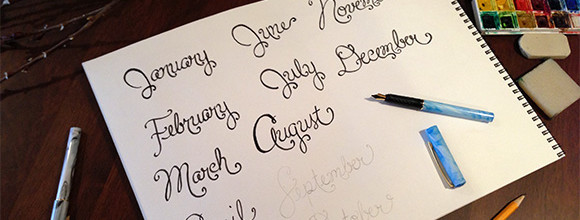 January
February
March
April
June
July
August
September
October
November
December